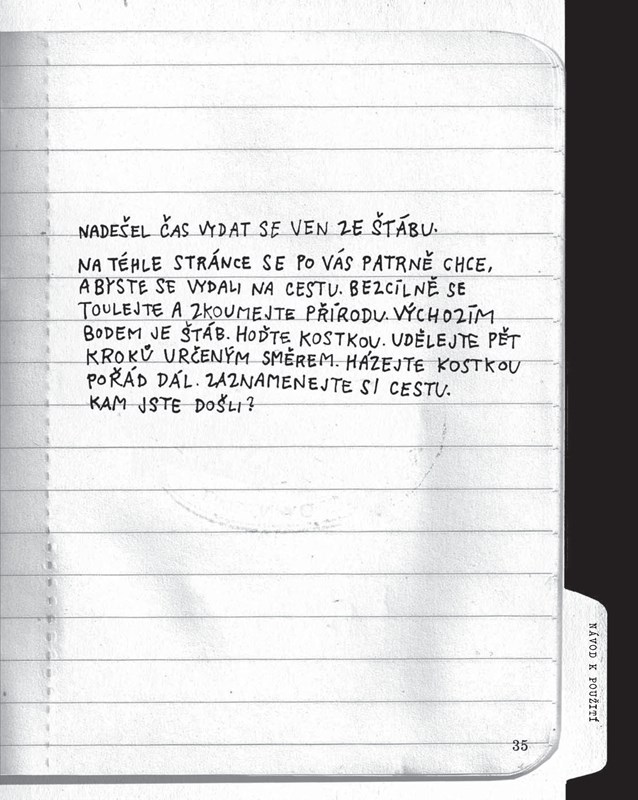 NADEŠEL ČAS VYDAT SE VEN ZE ŠTÁBU.
NA TÉHLE STRÁNCE SE PO VÁS PATRNĚ CHCE,
ABYSTE SE VYDALI NA CESTU. BEZCÍLNĚ SE
TOULEJTE A ZKOUMEJTE PŘÍRODU. VÝCHOZÍM
BODEM JE ŠTÁB. HOĎTE KOSTKOU. UDĚLEJTE PĚT
KROKŮ URČENÝM SMĚREM. HÁZEJTE KOSTKOU
POŘÁD DÁL. ZAZNAMENEJTE SI CESTU.
KAM JSTE DOŠLI?
NÁVOD K POUŽITÍ
35